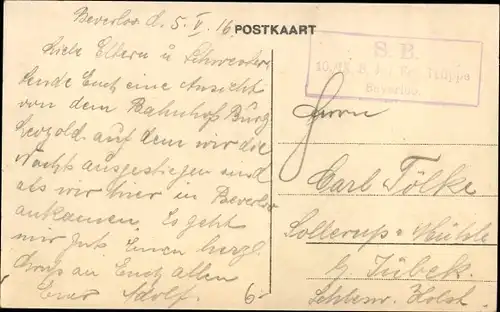 Beverloo d. 5. V. 16
POSTKAART
Liebe Eltern u. Schwester,
sende Euch eine Ansicht
von dem Bahnhof Burg
Leopold auf dem wir die
Nacht ausgestiegen sind
als wir hier in Beverloo
ankamen. Es geht
mir gut. Einen herzl.
Gruß an Euch allen
Euer Adolf.
6
S. B.
Beverloo.
Herrn
Carl Tölke
Solterup-Mühle
b. Jübek.
Schlesw. Holst.